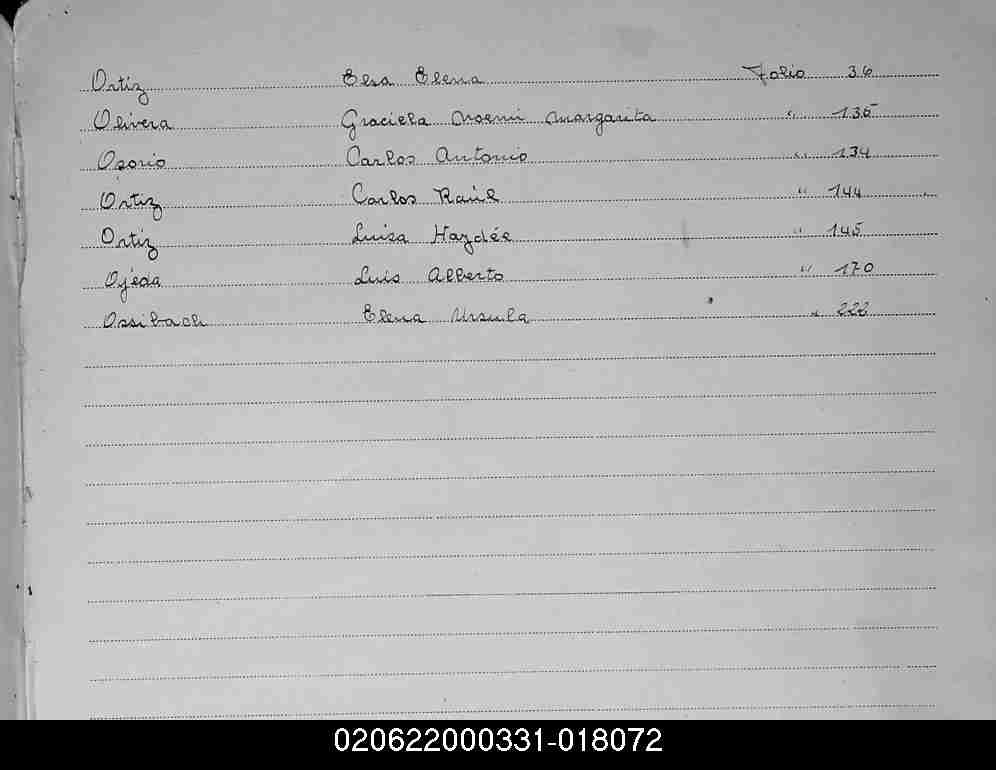 Ortiz Elsa Elena Folio 36
Olivera Graciela Noemi Margarita " 135
Osorio Carlos Antonio " 134
Ortiz Carlos Raúl " 144
Ortiz Luisa Haydée " 145
Ojeda Luis Alberto " 170
Ossibach Elena Ursula " 222
020622000331-018072